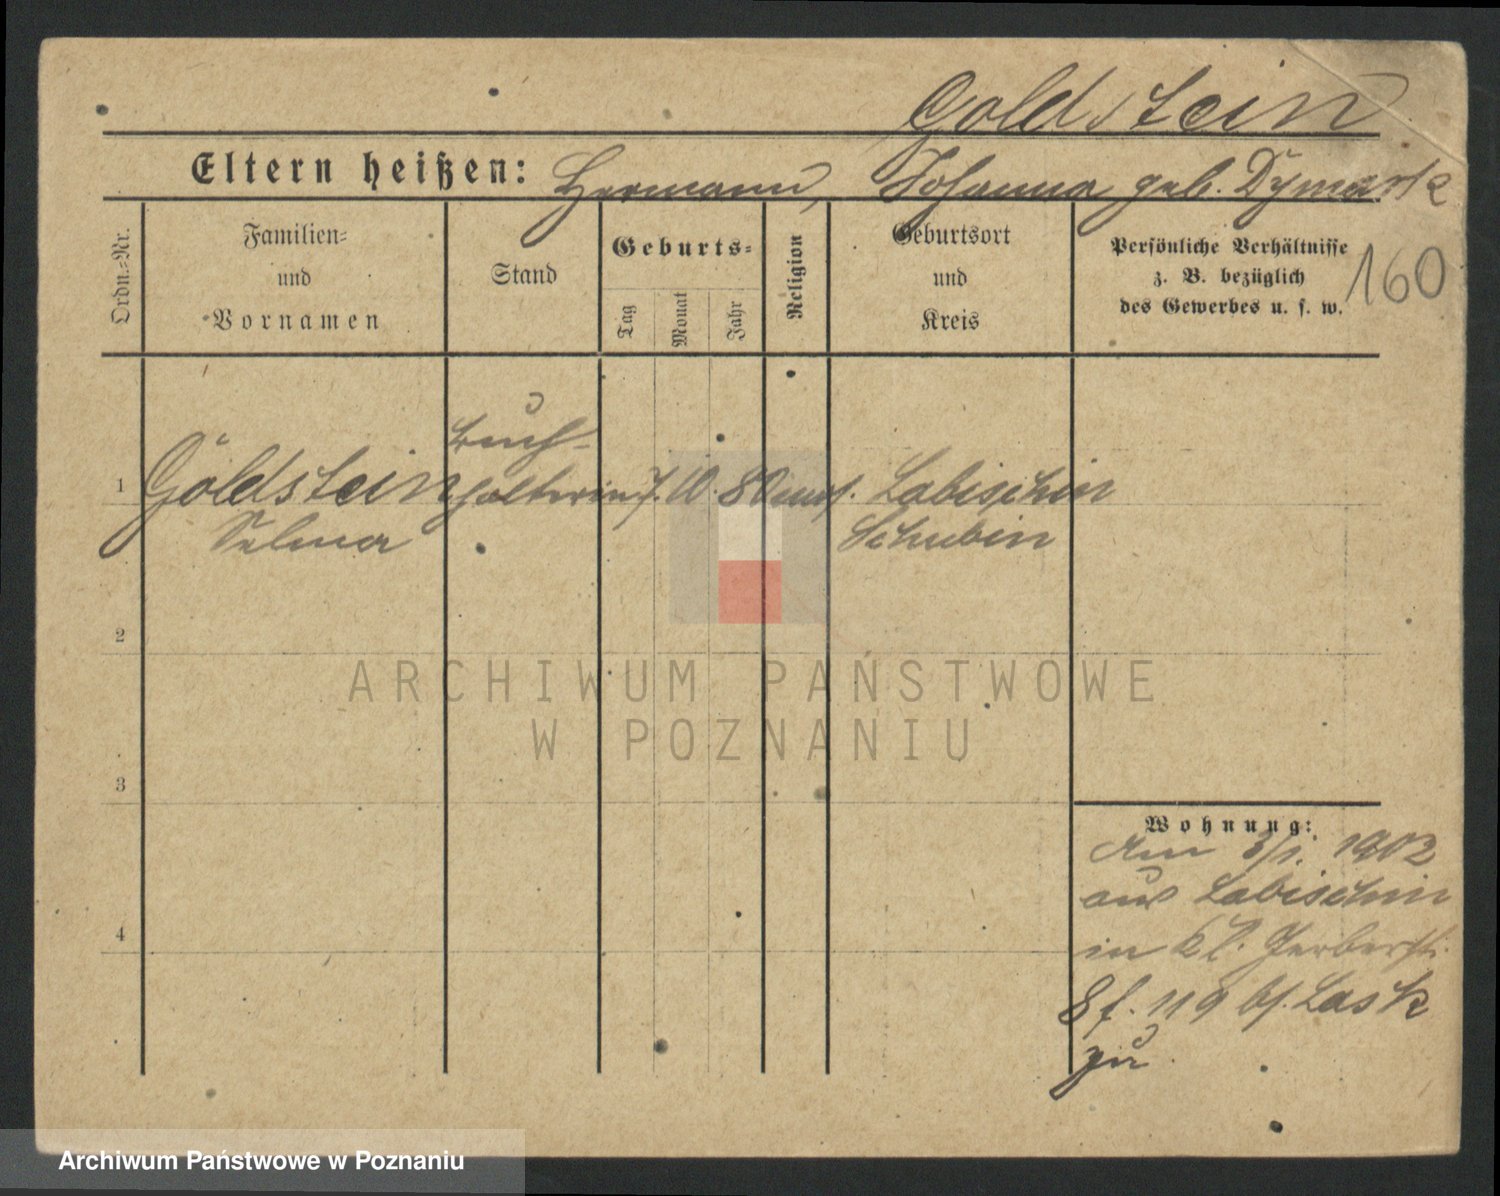 Goldstein
Eltern heißen: Hermann, Johanna geb. Dymarsk
Ordn.-Nr.
Familien-
und
Vornamen
Stand
Geburts-
Tag
Monat
Jahr
Religion
Geburtsort
und
Kreis
Persönliche Verhältnisse
z. B. bezüglich
des Gewerbes u. s. w.
160
Buch-
1 Goldstein halterin 7. 10. 80 mos. Labischin
Selma Schubin
2
3
4
Wohnung:
Am 3/1. 1902
aus Labischin
in Kl. Gerberstr.
8 f. 119 bf. Lask
zu
ARCHIWUM PAŃSTWOWE
W POZNANIU
Archiwum Państwowe w Poznaniu